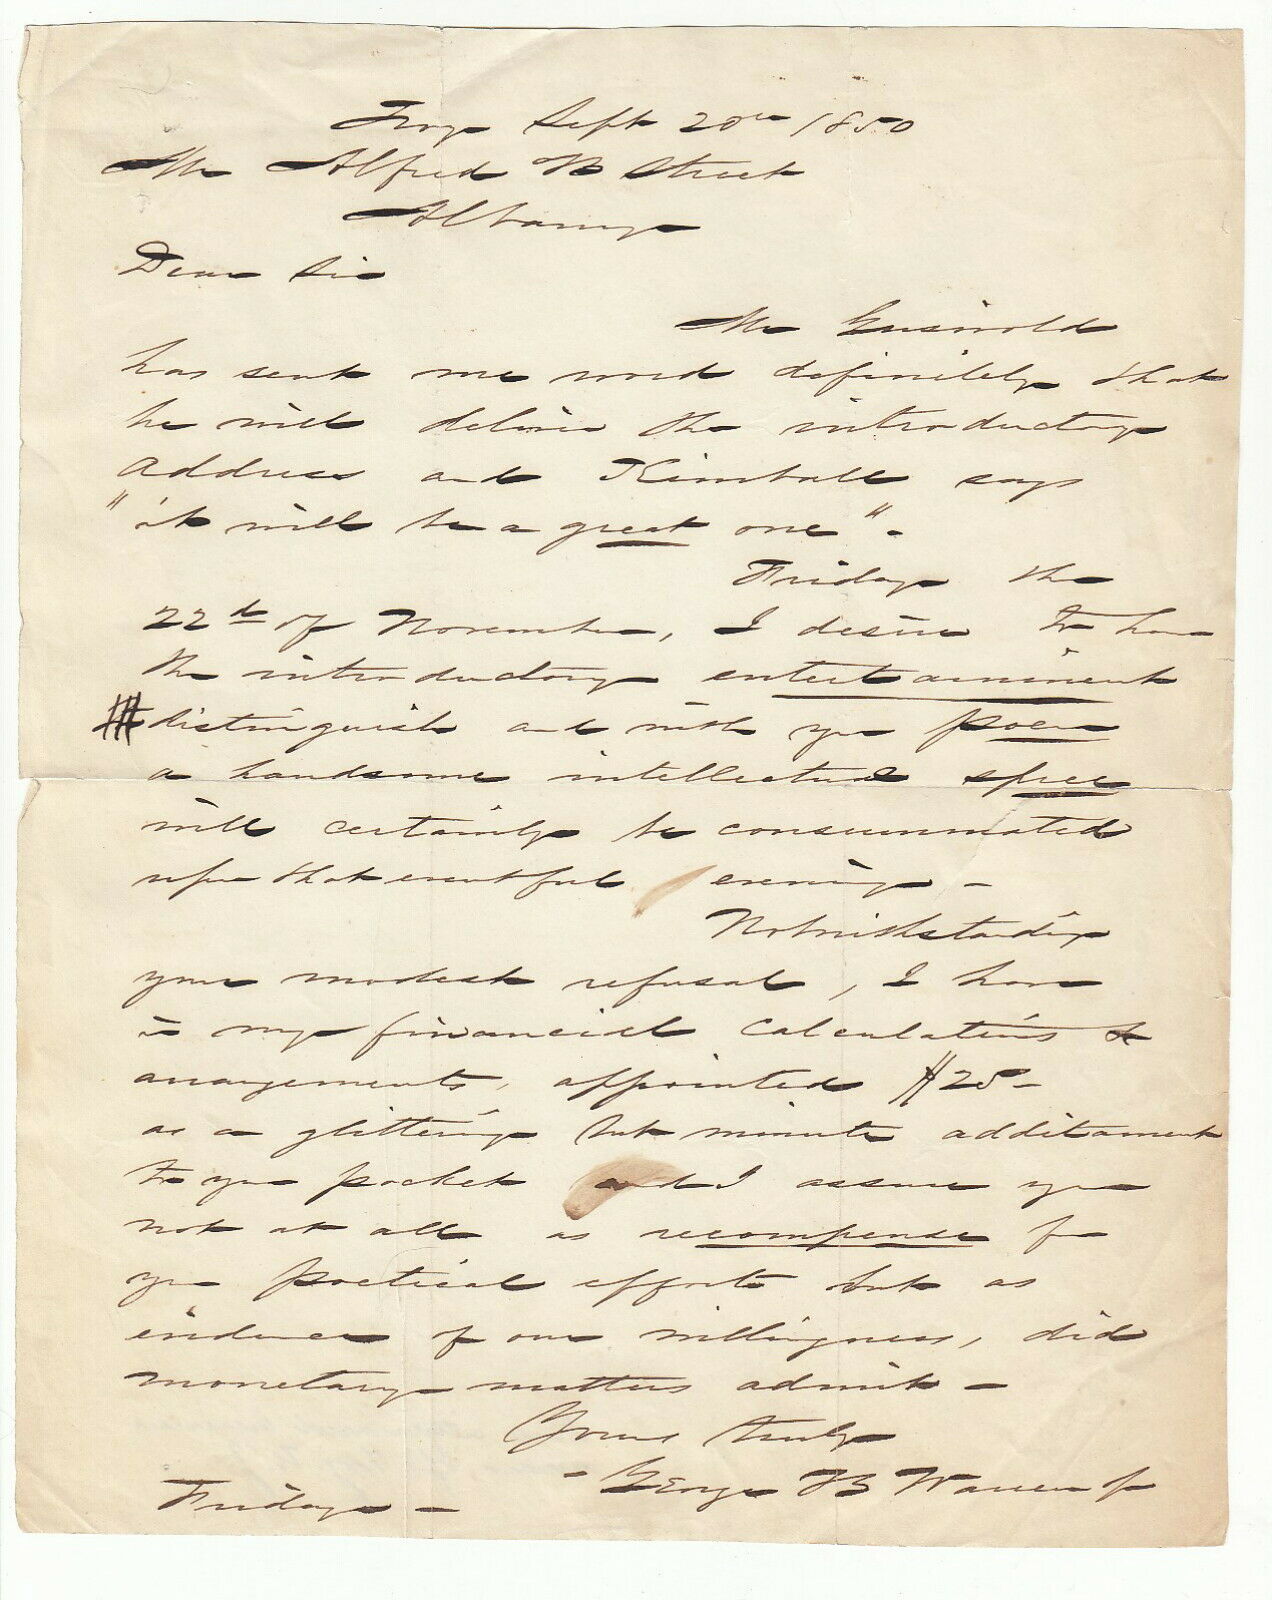 Troy Sept 20th 1850
Mr Alfred B Street
Albany
Dear Sir
Mr Griswold
has sent me word definitely that
he will deliver the introductory
address and Kimball says
"it will be a great one" -
Friday the
22d of November, I desire to have
the introductory entertainment
distinguish and with your poem
a handsome intellectual spree
will certainly be consummated
upon that eventful evening -
Notwithstanding
your modest refusal, I have
in my financial calculations &
arrangements, appointed $25 -
as a glittering but minute additament
to your pocket and I assure you
not at all as recompense for
your poetical efforts but as
evidence of our willingness, did
monetary matters admit -
Yours truly
- George B Warren Jr
Friday -